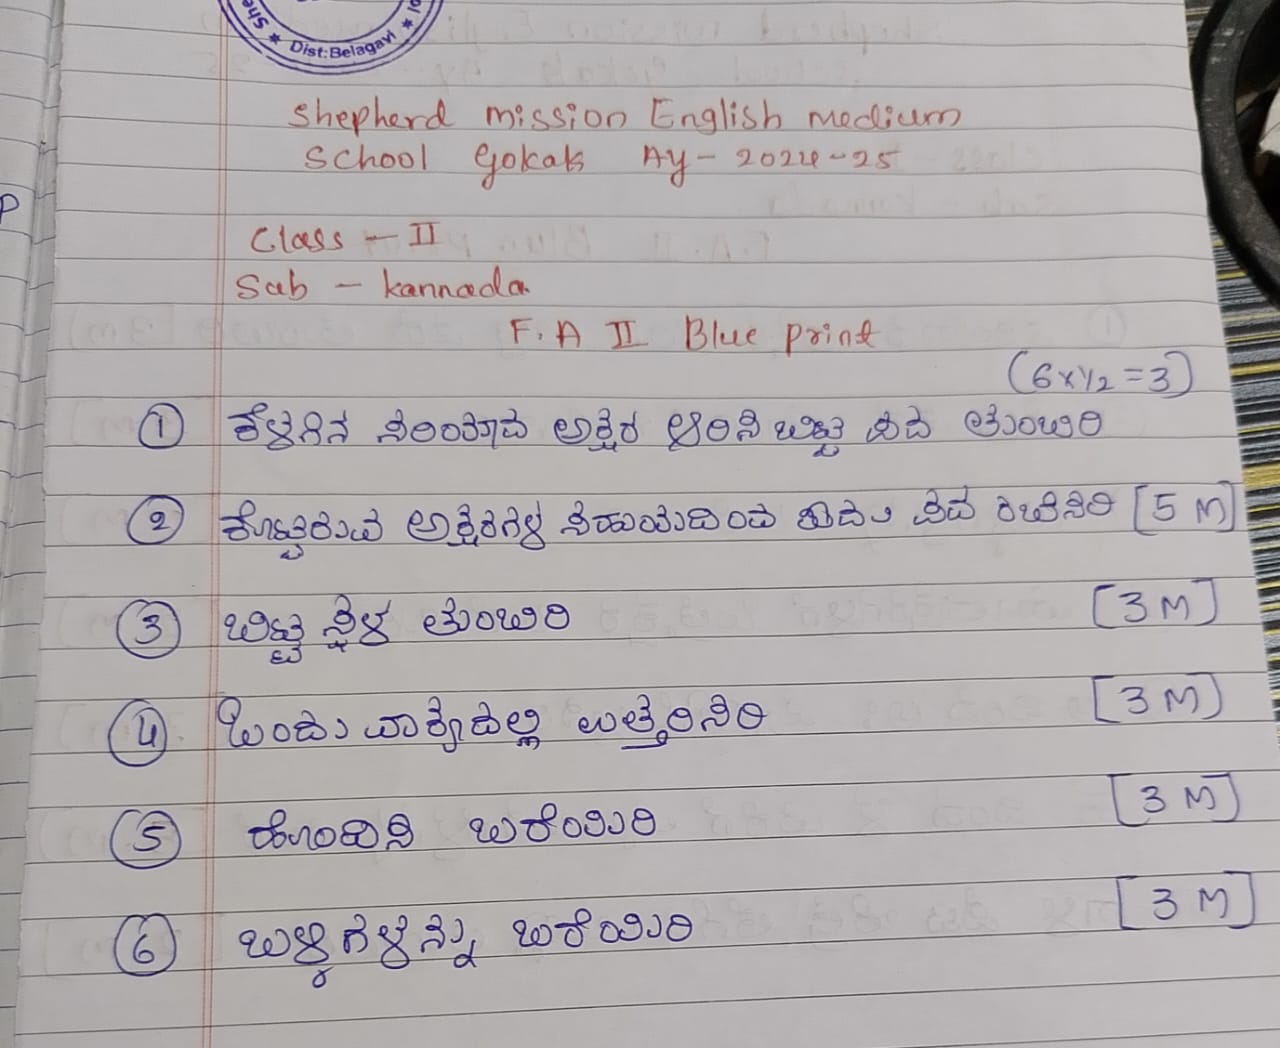 She
ol
★ Dist:Belagavi ★
Shepherd mission English medium
School Gokak AY - 2024-25
P
Class - II
Sub - kannada
F.A II Blue print
(6x1/2=3)
① ಕೆಳಗಿನ ಸರಿಯಾದ ಅಕ್ಷರ ಆರಿಸಿ ಬಿಟ್ಟ ಪದ ತುಂಬಿರಿ
② ಕೊಟ್ಟಿರುವ ಅಕ್ಷರಗಳ ಸಹಾಯದಿಂದ ಪದ ರಚಿಸಿರಿ [5 M]
③ ಬಿಟ್ಟ ಸ್ಥಳ ತುಂಬಿರಿ [3 M]
④ ಒಂದು ವಾಕ್ಯದಲ್ಲಿ ಉತ್ತರಿಸಿರಿ [3 M]
⑤ ಹೊಂದಿಸಿ ಬರೆಯಿರಿ [3 M]
⑥ ಬಳ್ಳಿಗಳನ್ನು ಬರೆಯಿರಿ [3 M]